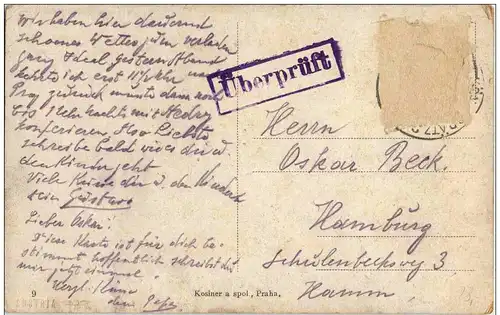 Wir haben hier dauernd
schönes Wetter, jeden
ganz Ideal, gestern Abend
ich erst 11½ Uhr
Prag zurück musste dann noch
bis 1 Uhr nachts mit
konferieren. Also
schreibe bald wie es dir u.
den Kindern geht
Viele Küsse dir u. den Kindern
dein Gustav
Lieber Oskar!
Diese Karte ist für dich be-
stimmt hoffentlich schreibst du
mir jetzt einmal.
Herzl. Küsse
dein Papa
Überprüft
Herrn
Oskar Beck.
Hamburg
Schulenbecksweg 3
Hamm.
9
Kosiner a spol., Praha.